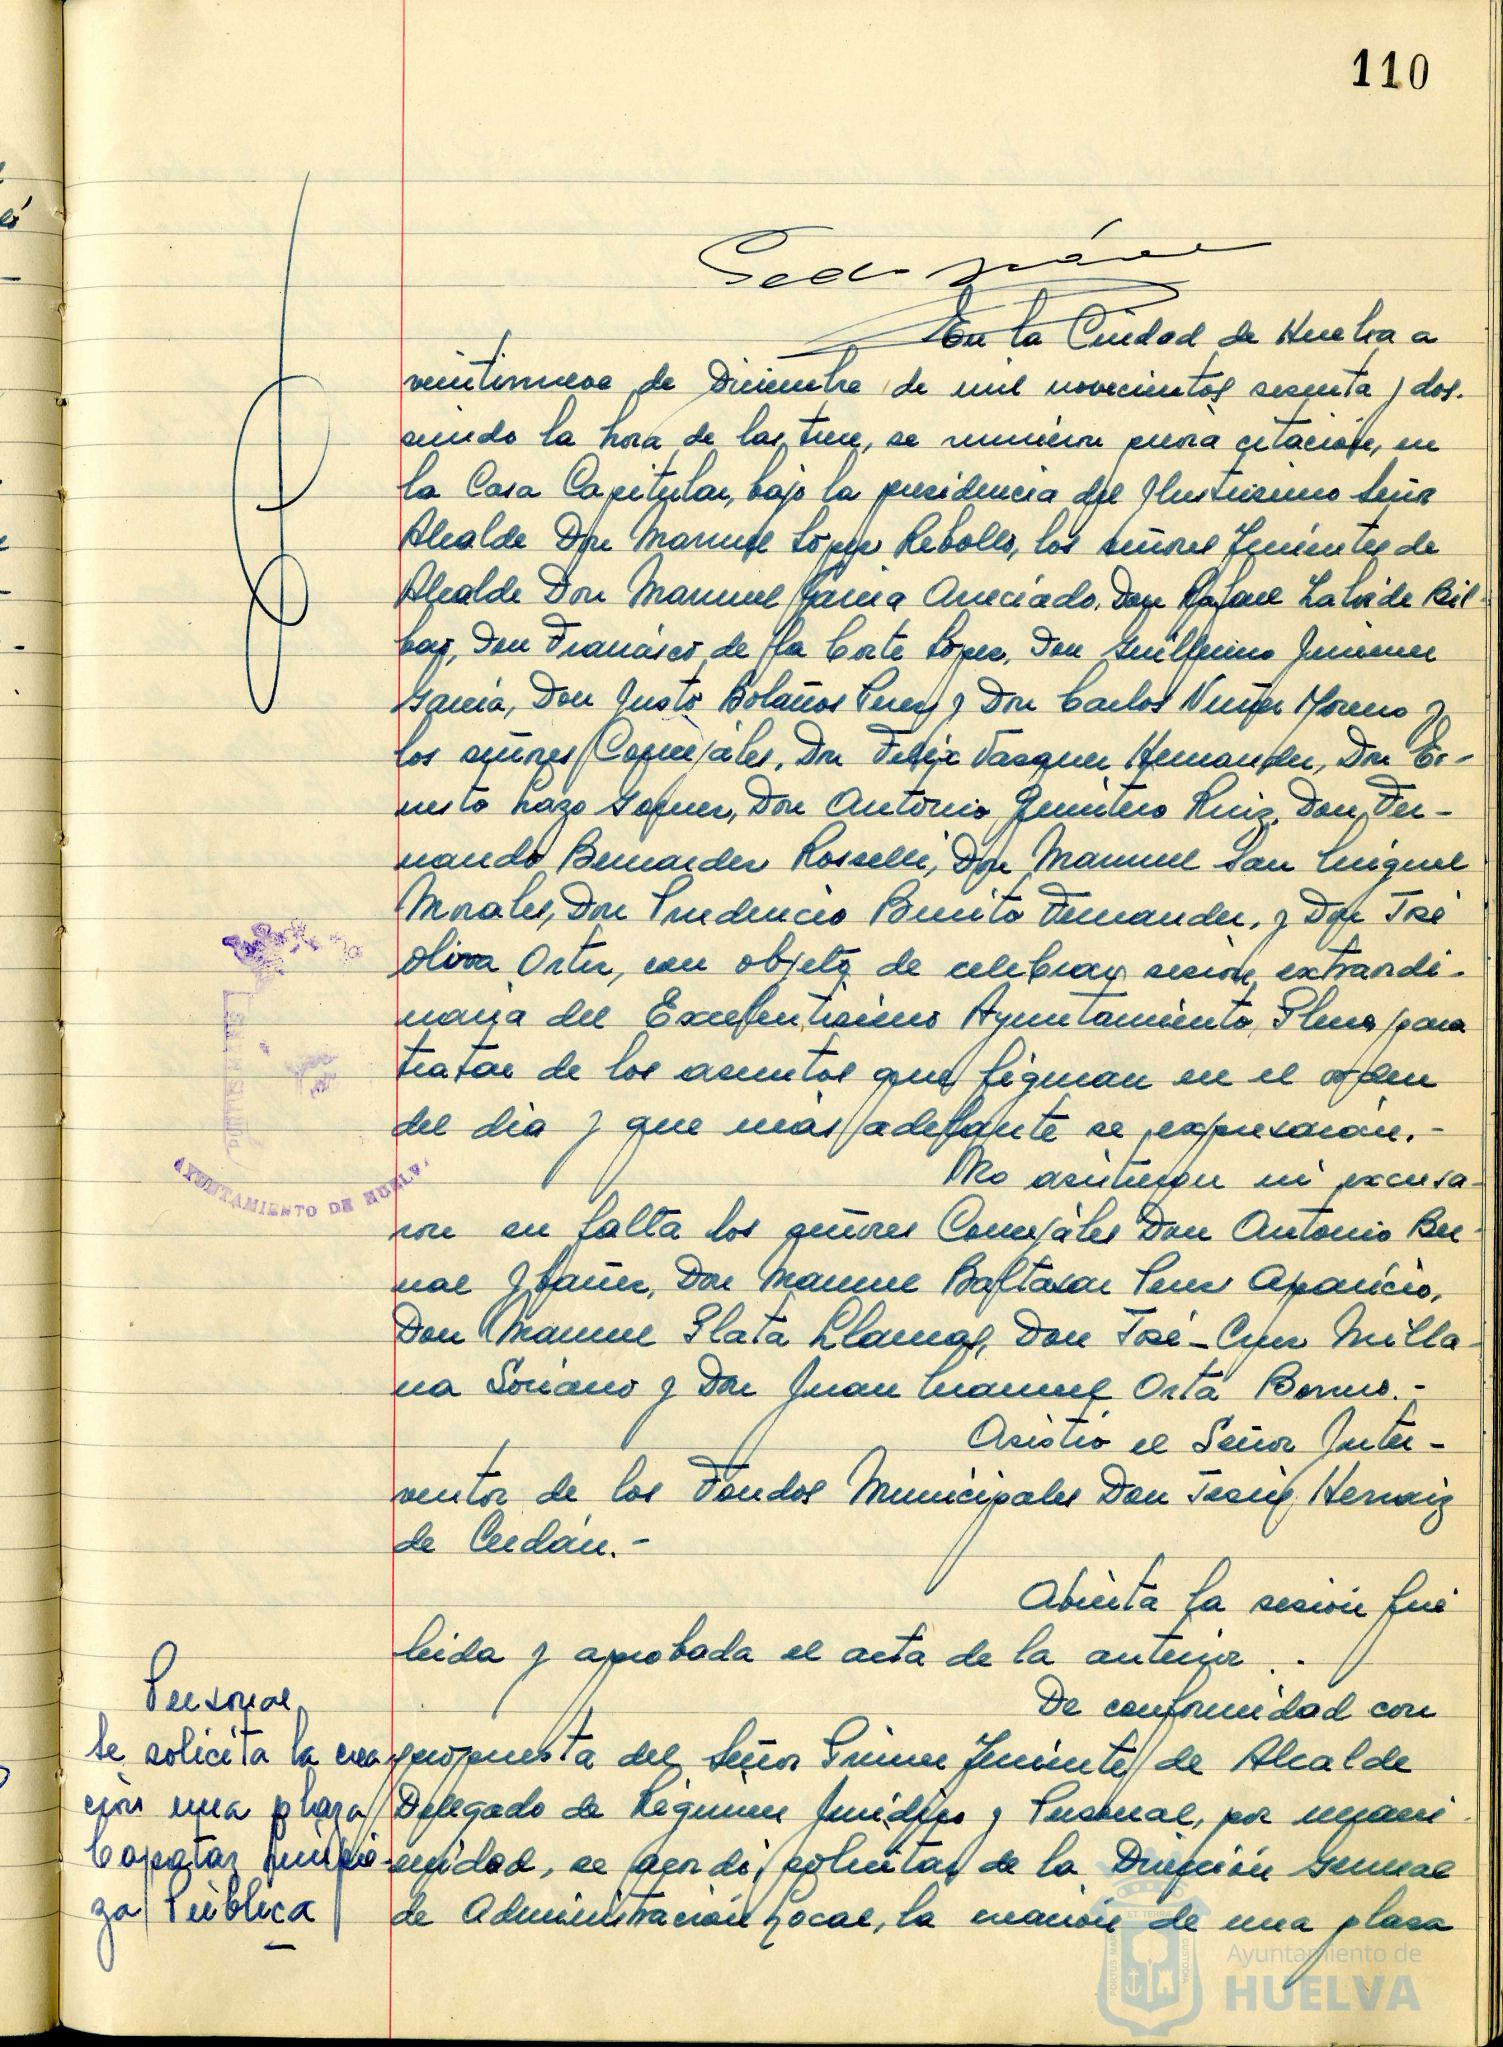 110
En la Ciudad de Huelva a
veintinueve de Diciembre de mil novecientos sesenta y dos.
siendo la hora de las trece, se reunieron previa citación, en
la Casa Capitular, bajo la presidencia del Ilustrisimo Señor
Alcalde Don Manuel López Rebollo, los señores Tenientes de
Alcalde Don Manuel Garcia Aneciado, Don Rafael Lahide Bil-
bao, Don Francisco de la Corte López, Don Guillermo Jimenez
García, Don Justo Bolaños Perez y Don Carlos Nuñez Moreno y
los señores Concejáles, Don Felix Vazquez Hernandez, Don Er-
nesto Lazo Gomez, Don Antonio Quintero Ruiz, Don Fer-
nando Bernardez Rosselli, Don Manuel San Miguel
Morales, Don Prudencio Benito Fernandez, y Don José
Oliva Ortiz, con objeto de celebrar sesión extraordi-
naria del Excelentisimo Ayuntamiento Pleno para
tratar de los asuntos que figuran en el orden
del dia y que más adelante se expresarán.-
No asistieron ni excusa-
ron su falta los señores Concejáles Don Antonio Ber-
nal Ybañez, Don Manuel Baltasar Perez Aparicio,
Don Manuel Plata Llamas, Don José-Cruz Milla-
na Soriano y Don Juan Manuel Orta Borrero.-
Asistió el Señor Inter-
ventor de los Fondos Municipales Don Jesús Hernaiz
de Cerdán.-
Abierta la sesión fué
leida y aprobada el acta de la anterior.-
Personal
Se solicita la crea
ción una plaza
Capataz Limpie-
za Pública
De conformidad con
propuesta del Señor Primer Teniente de Alcalde
Delegado de Régimen Jurídico y Personal, por unani-
midad, se acordó, solicitar de la Dirección General
de Administración Local, la creación de una plaza
PORTUS MARIS
AYUNTAMIENTO DE HUELVA
PORTUS MARIS ET TERRAE CUSTODIA
Ayuntamiento de
HUELVA